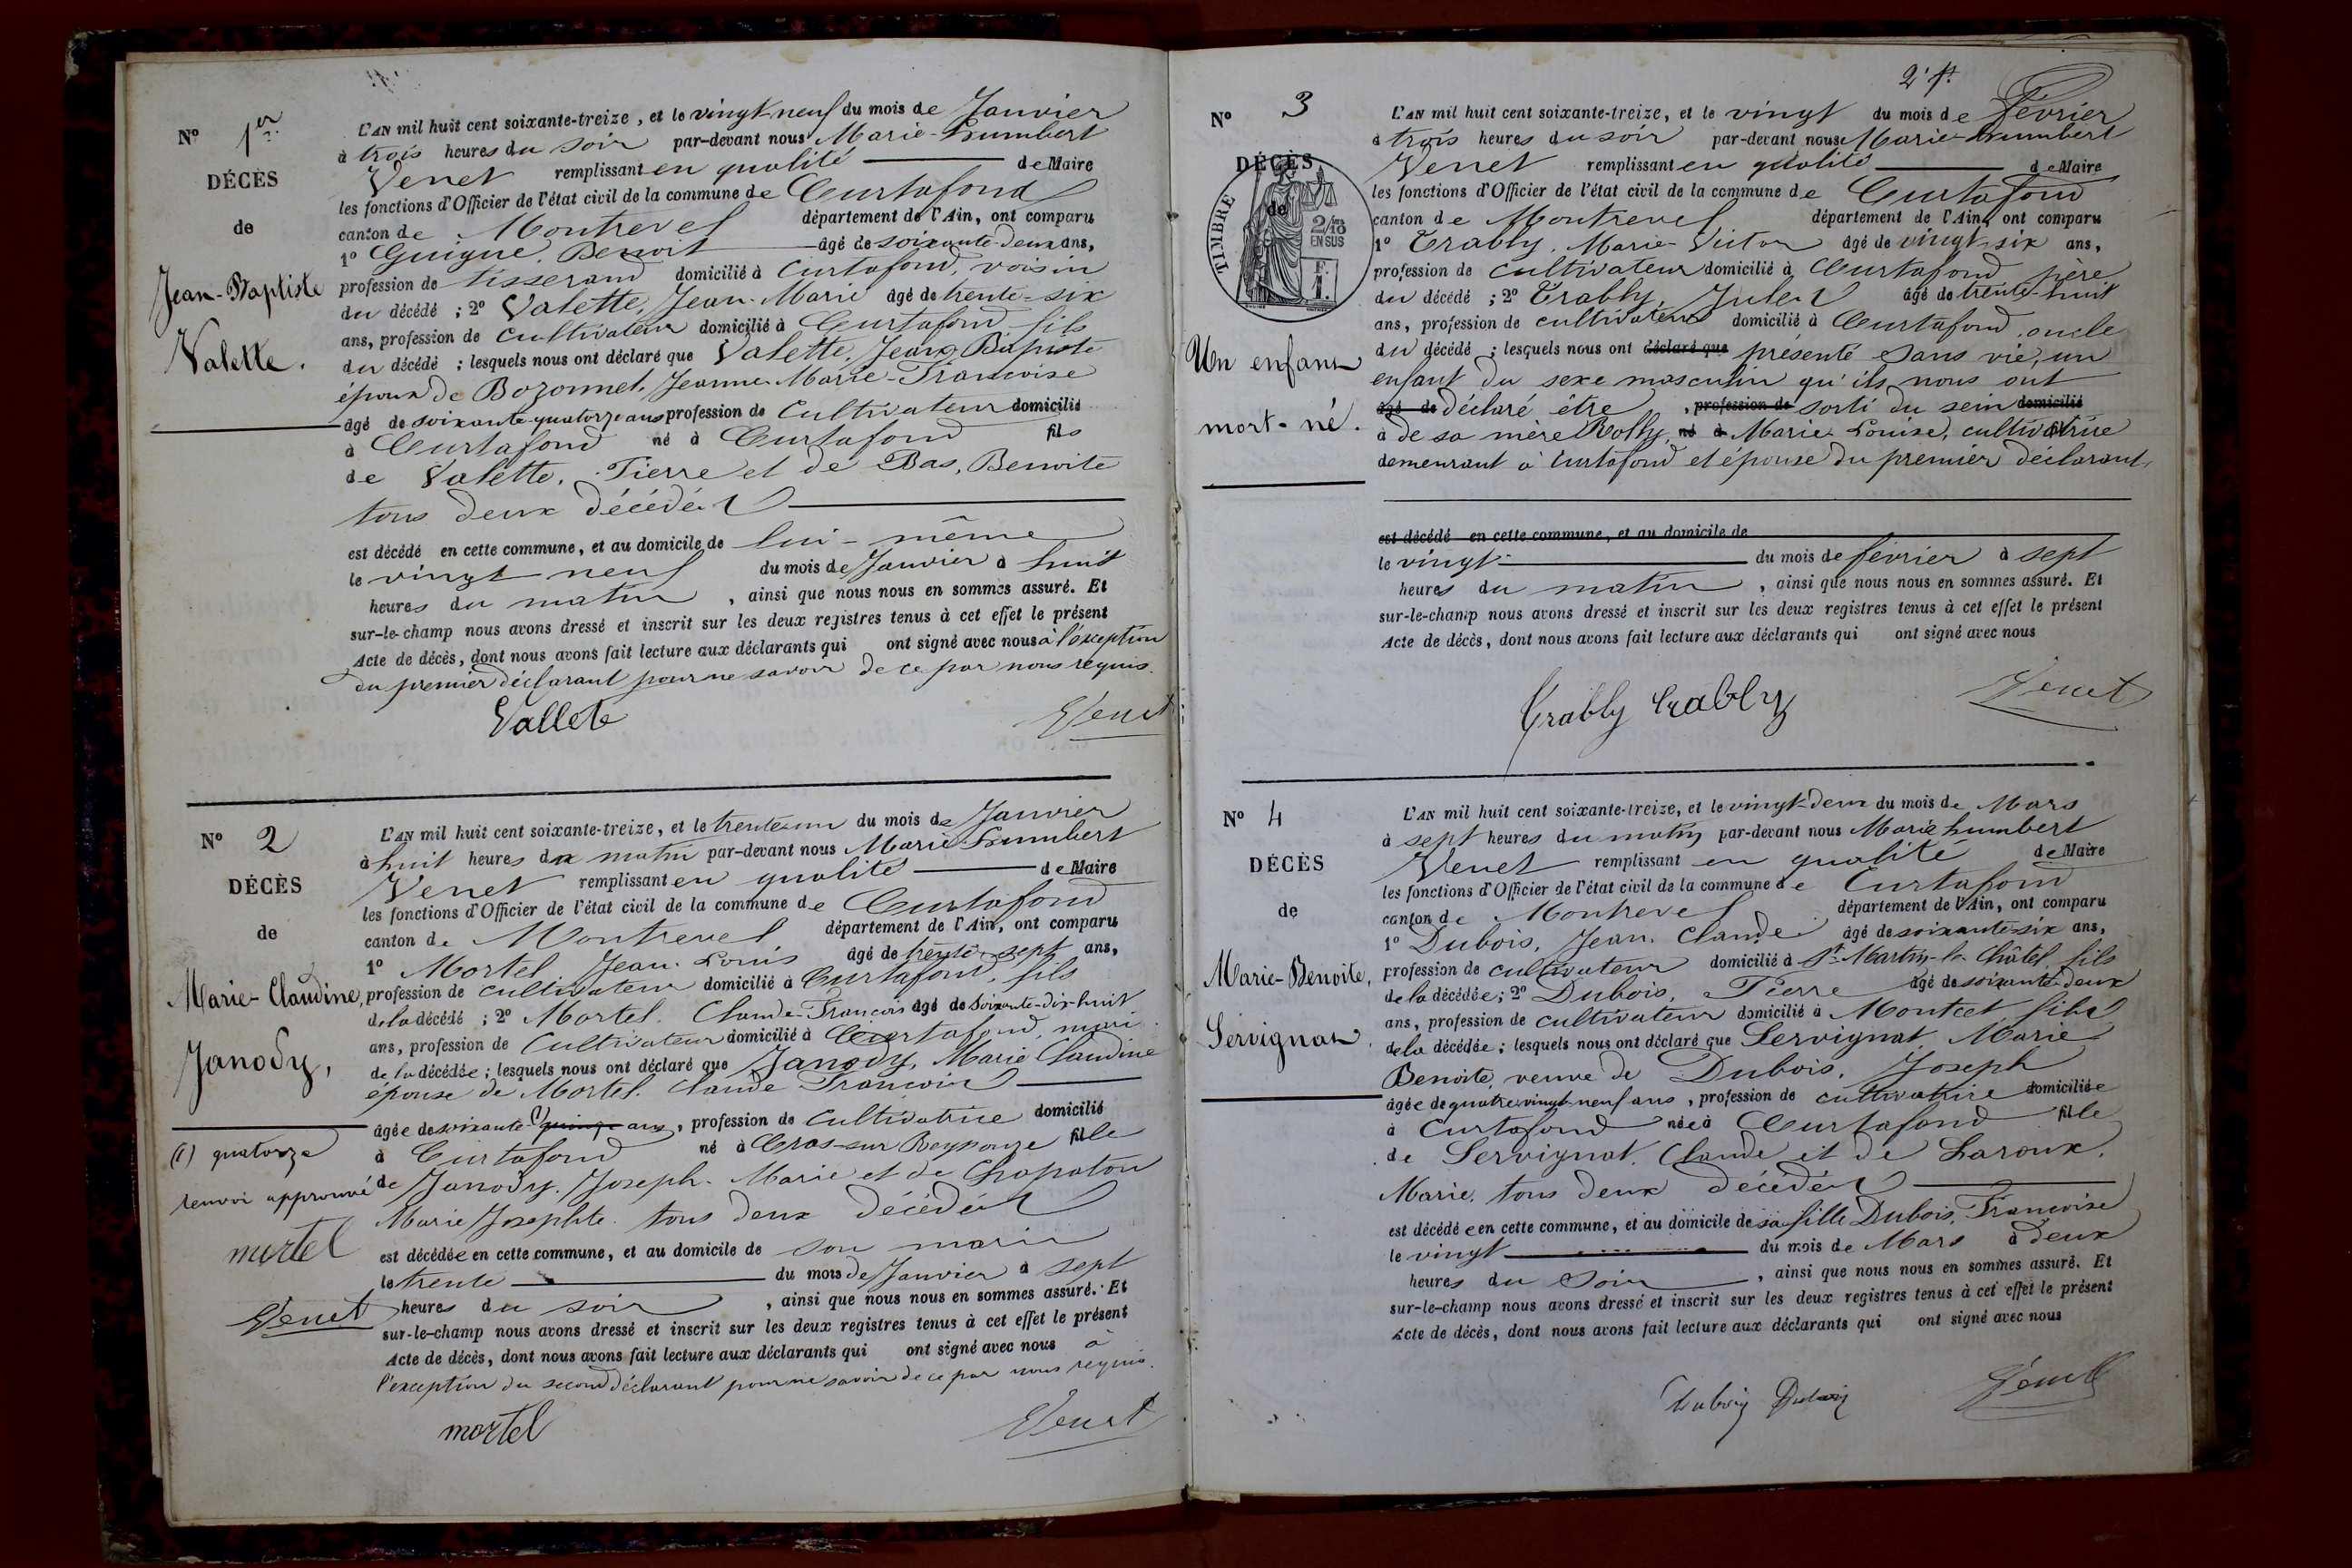 N° 1er
DÉCÈS
de
Jean-Baptiste
Valette.
L'AN mil huit cent soixante-treize, et le vingt-neuf du mois de Janvier
à trois heures du soir par-devant nous Marie-humbert
Venet remplissant en qualité de Maire
les fonctions d'Officier de l'état civil de la commune de Curtafond
canton de Montrevel département de l'Ain, ont comparu
1° Guigue, Benoit âgé de soixante-deux ans,
profession de tisserand domicilié à Curtafond, voisin
du décédé ; 2° Valette, Jean-Marie âgé de trente-six
ans, profession de cultivateur domicilié à Curtafond fils
du décédé ; lesquels nous ont déclaré que Valette, Jean Baptiste
époux de Bozonnet, Jeanne-Marie-Francoise
âgé de soixante-quatorze ans profession de Cultivateur domicilié
à Curtafond né à Curtafond fils
de Valette, Pierre et de Bas, Benoite
tous deux décédés
est décédé en cette commune, et au domicile de lui-même
le vingt neuf du mois de Janvier à huit
heures du matin, ainsi que nous nous en sommes assuré. Et
sur-le-champ nous avons dressé et inscrit sur les deux registres tenus à cet effet le présent
Acte de décès, dont nous avons fait lecture aux déclarants qui ont signé avec nous à l'exception
du premier déclarant pour ne savoir de ce par nous requis.
Vallete Venet
N° 2
DÉCÈS
de
Marie-Claudine,
Janody,
(1) quatorze
renvoi approuvé
mortel
Venet
L'AN mil huit cent soixante-treize, et le trente-un du mois de Janvier
à huit heures du matin par-devant nous Marie-humbert
Venet remplissant en qualité de Maire
les fonctions d'Officier de l'état civil de la commune de Curtafond
canton de Montrevel département de l'Ain, ont comparu
1° Mortel Jean-Louis âgé de trente-sept ans,
profession de cultivateur domicilié à Curtafond, fils
de la décédé ; 2° Mortel. Claude-Francois âgé de soixante-dix-huit
ans, profession de Cultivateur domicilié à Curtafond, mari
de la décédée ; lesquels nous ont déclaré que Janody, Marie Claudine
épouse de Mortel. Claude Francois
âgée de soixante-(1) quinze ans, profession de cultivatrice domicilié
à Curtafond né à Cras-sur Reyssouze fille
de Janody. Joseph-Marie et de Chapaton
Marie Josephte. tous deux décédés
est décédée en cette commune, et au domicile de son mari
le trente du mois de Janvier à sept
heures du soir, ainsi que nous nous en sommes assuré. Et
sur-le-champ nous avons dressé et inscrit sur les deux registres tenus à cet effet le présent
Acte de décès, dont nous avons fait lecture aux déclarants qui ont signé avec nous à
l'exception du second déclarant pour ne savoir de ce par nous requis.
mortel Venet
2e ft
N° 3
DÉCÈS
de
TIMBRE
2/10
EN SUS
F.
1.
Un enfant
mort-né.
L'AN mil huit cent soixante-treize, et le vingt du mois de Février
à trois heures du soir par-devant nous Marie-humbert
Venet remplissant en qualité de Maire
les fonctions d'Officier de l'état civil de la commune de Curtafond
canton de Montrevel département de l'Ain, ont comparu
1° Trably, Marie-Victor âgé de vingt-six ans,
profession de cultivateur domicilié à Curtafond père
du décédé ; 2° Trably, Jules âgé de trente-huit
ans, profession de cultivateur domicilié à Curtafond, oncle
du décédé ; lesquels nous ont déclaré que présenté sans vie, un
enfant du sexe masculin qu'ils nous ont
âgé de déclaré être, profession de sorti du sein domicilié
à de sa mère Rolly, né à Marie Louise, cultivatrice
demeurant à Curtafond et épouse du premier déclarant,
est décédé en cette commune, et au domicile de
le vingt du mois de février à sept
heures du matin, ainsi que nous nous en sommes assuré. Et
sur-le-champ nous avons dressé et inscrit sur les deux registres tenus à cet effet le présent
Acte de décès, dont nous avons fait lecture aux déclarants qui ont signé avec nous
Trably trably Venet
N° 4
DÉCÈS
de
Marie-Benoite,
Servignat.
L'AN mil huit cent soixante-treize, et le vingt-deux du mois de Mars
à sept heures du matin par-devant nous Marie humbert
Venet remplissant en qualité de Maire
les fonctions d'Officier de l'état civil de la commune de Curtafond
canton de Montrevel département de l'Ain, ont comparu
1° Dubois, Jean-Claude âgé de soixante-six ans,
profession de cultivateur domicilié à St-Martin-le-Châtel fils
de la décédée ; 2° Dubois, Pierre âgé de soixante-deux
ans, profession de cultivateur domicilié à Montcet, fils
de la décédée ; lesquels nous ont déclaré que Servignat, Marie
Benoite, veuve de Dubois, Joseph
âgée de quatre-vingt-neuf ans, profession de cultivatrice domiciliée
à Curtafond née à Curtafond fille
de Servignat, Claude et de Laroux,
Marie, tous deux décédés
est décédée en cette commune, et au domicile de sa fille Dubois, Francoise
le vingt du mois de Mars à deux
heures du soir, ainsi que nous nous en sommes assuré. Et
sur-le-champ nous avons dressé et inscrit sur les deux registres tenus à cet effet le présent
Acte de décès, dont nous avons fait lecture aux déclarants qui ont signé avec nous
Dubois Dubois Venet